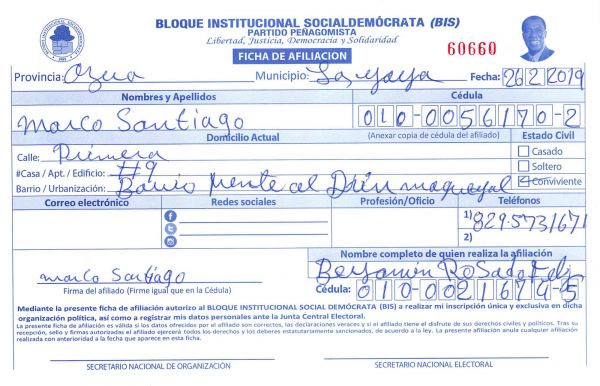 BLOQUE INSTITUCIONAL SOCIALDEMÓCRATA (BIS)
PARTIDO PEÑAGOMISTA
Libertad, Justicia, Democracia y Solidaridad
FICHA DE AFILIACION
60660
Provincia: Azua Municipio: Fecha: 26/2/2019
Nombres y Apellidos Cédula
Marco Santiago 010-0056170-2
Domicilio Actual (Anexar copia de cédula del afiliado) Estado Civil
Calle: Primera Casado
#Casa / Apt. / Edificio: #9 Soltero
Barrio / Urbanización: Barrio frente al Conviviente
Correo electrónico Redes sociales Profesión/Oficio Teléfonos
1) 829-5731671
2)
Nombre completo de quien realiza la afiliación
Marco Santiago Benjamín Rosado Feliz
Firma del afiliado (Firme igual que en la Cédula) Cédula: 010-0021674-5
Mediante la presente ficha de afiliación autorizo al BLOQUE INSTITUCIONAL SOCIAL DEMÓCRATA (BIS) a realizar mi inscripción única y exclusiva en dicha
organización política, así como a registrar mis datos personales ante la Junta Central Electoral.
La presente ficha de afiliación es válida si los datos ofrecidos por el afiliado son correctos, las declaraciones veraces y si el afiliado tiene el disfrute de sus derechos civiles y políticos. Tras su
recepción, sello y firmas autorizadas el afiliado ejercerá todos los derechos y los deberes estatutariamente sancionados, de acuerdo a la ley. La presente afiliación anula cualquier afiliación
realizada con anterioridad a la fecha que aparece en esta ficha.
SECRETARIO NACIONAL DE ORGANIZACIÓN SECRETARIO NACIONAL ELECTORAL